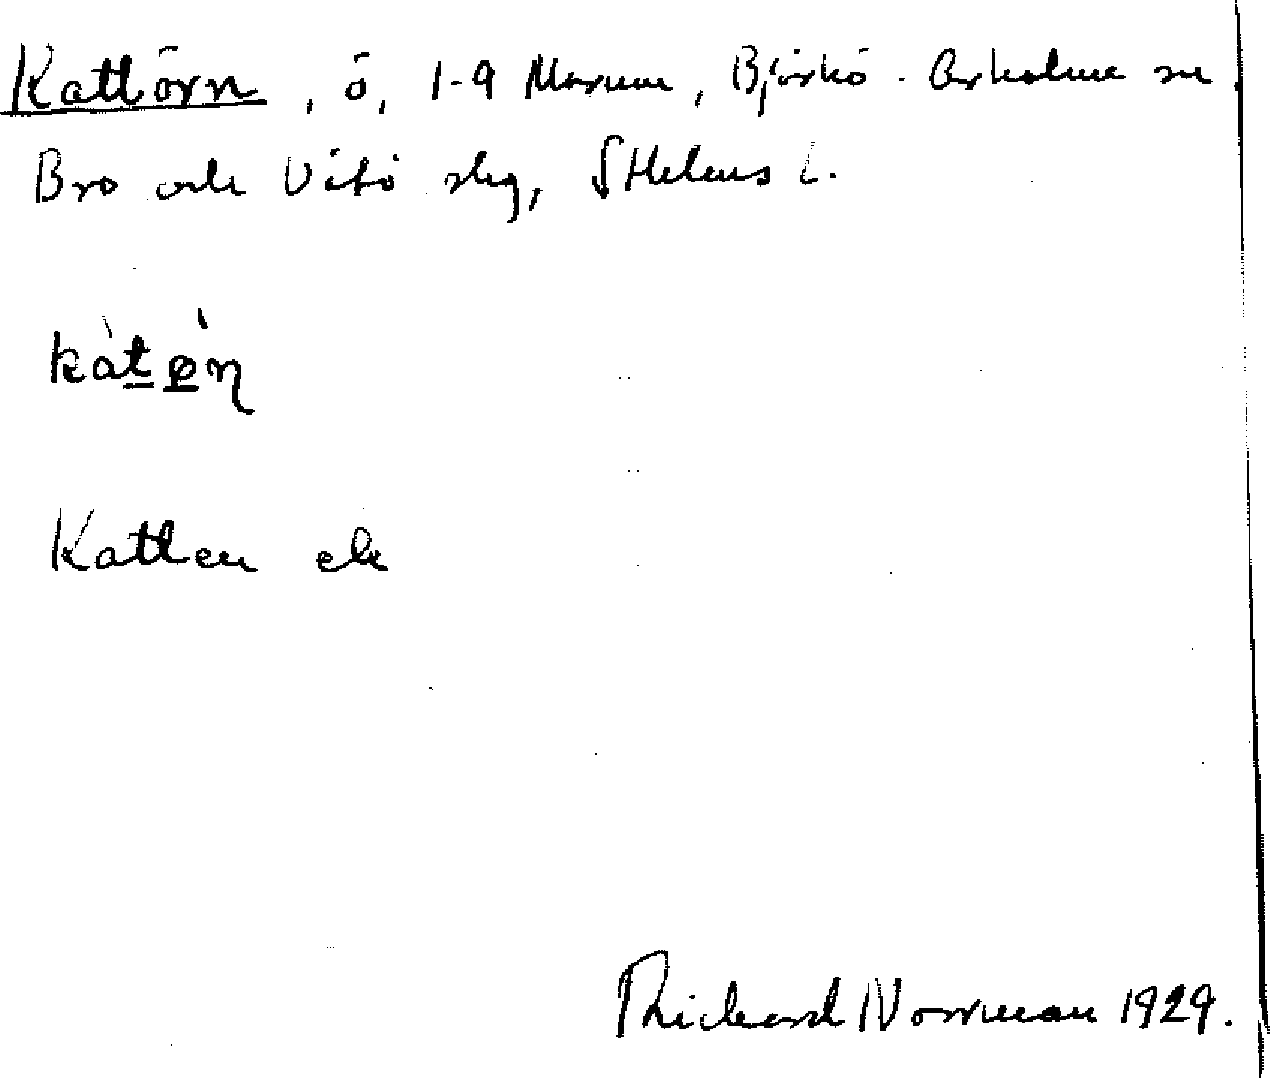 Kattörn, ö, 1-9 Marum, Björkö-Arholma sn
Bro och Vätö skg, Sthlms l.
kàt̠ø̠̀ɳ
Katten ek
Rickard Norrman 1929.